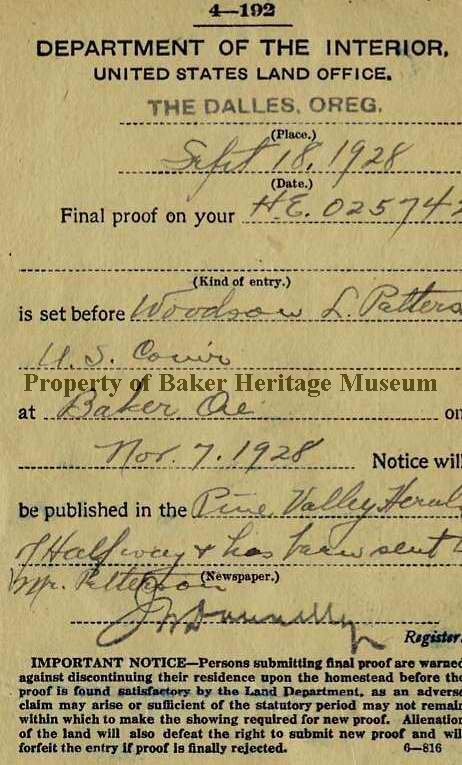 4—192
DEPARTMENT OF THE INTERIOR,
UNITED STATES LAND OFFICE.
THE DALLES, OREG.
(Place.)
Sept 18, 1928
(Date.)
Final proof on your H.E. 025742
(Kind of entry.)
is set before Woodson L. Patters
U.S. Comr
Property of Baker Heritage Museum
at Baker Ore on
Nov. 7, 1928 Notice will
be published in the Pine Valley Heral
of Halfway & has been sent
Mr. Patterson (Newspaper.)
Donnelly
Register.
IMPORTANT NOTICE—Persons submitting final proof are warned
against discontinuing their residence upon the homestead before the
proof is found satisfactory by the Land Department, as an adverse
claim may arise or sufficient of the statutory period may not remain
within which to make the showing required for new proof. Alienation
of the land will also defeat the right to submit new proof and will
forfeit the entry if proof is finally rejected. 6—816